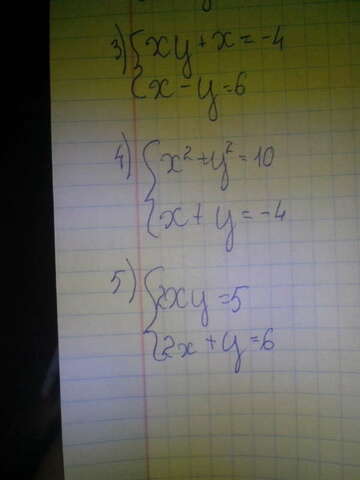 3) { xy + x = -4
x - y = 6
4) { x² + y² = 10
x + y = -4
5) { 2xy = 5
2x + y = 6